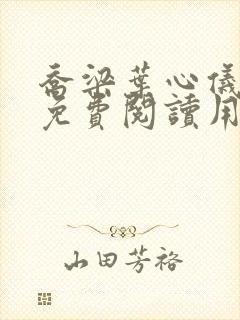 喬梁葉心儀
免費閱讀用
山田芳裕